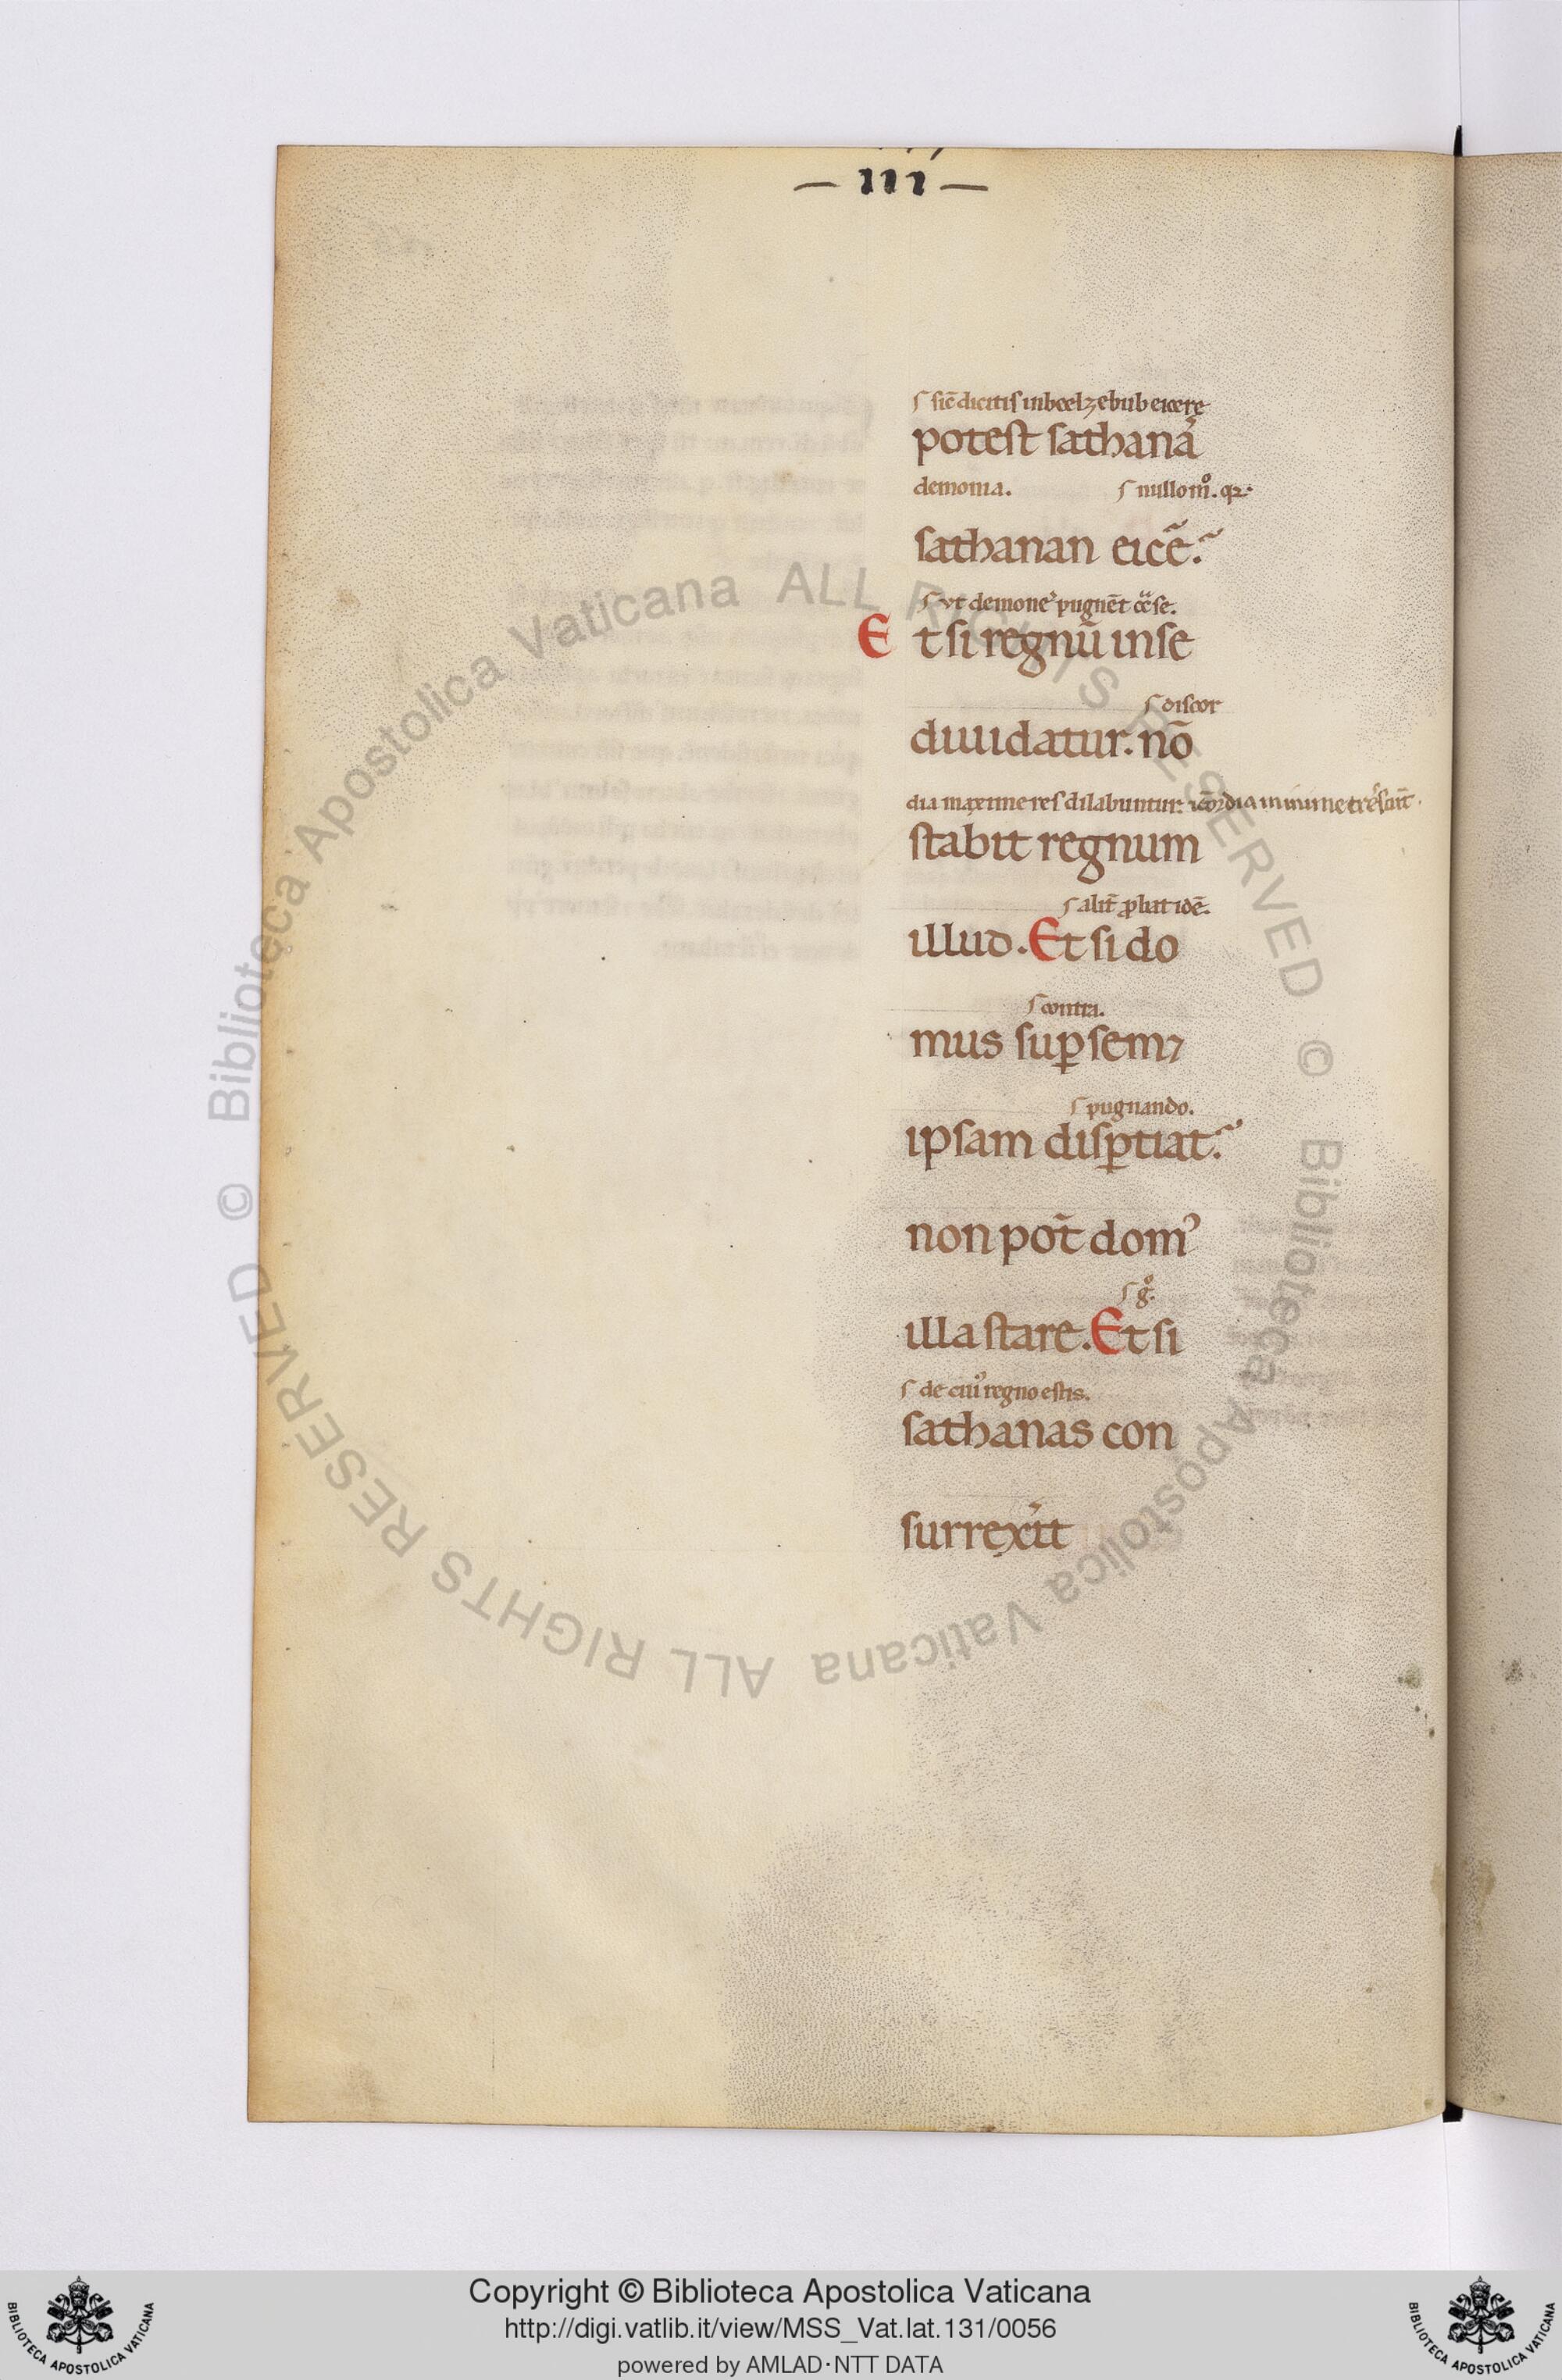 — iii —
ſ ſic̄ dicitiſ inbeelzebub eicere
poteſt ſathanaſ
demonia. ſ nullo m̊. qꝛ.
ſathanan eicē.
ſ vt demoneꝰ pugnēt
E t ſi regnū inſe
ſ diſcor
diuidatur. nō
dia maxime reſ dilabuntur.
ſtabit regnum
ſ alit̄ ꝓbat idē.
illud. Et ſi do
ſ contra.
mus ſuꝑ ſem⁊
ſ pugnando.
ipſam diſꝑtiat.
non pot̄ domꝰ
ſ g̊.
illa ſtare. Et ſi
ſ de cuiꝰ regno eſtis.
ſathanas con
ſurrexit
© Biblioteca Apostolica Vaticana ALL RIGHTS RESERVED © Biblioteca Apostolica Vaticana ALL RIGHTS RESERVED
BIBLIOTECA APOSTOLICA VATICANA
Copyright © Biblioteca Apostolica Vaticana
http://digi.vatlib.it/view/MSS_Vat.lat.131/0056
powered by AMLAD·NTT DATA
BIBLIOTECA APOSTOLICA VATICANA